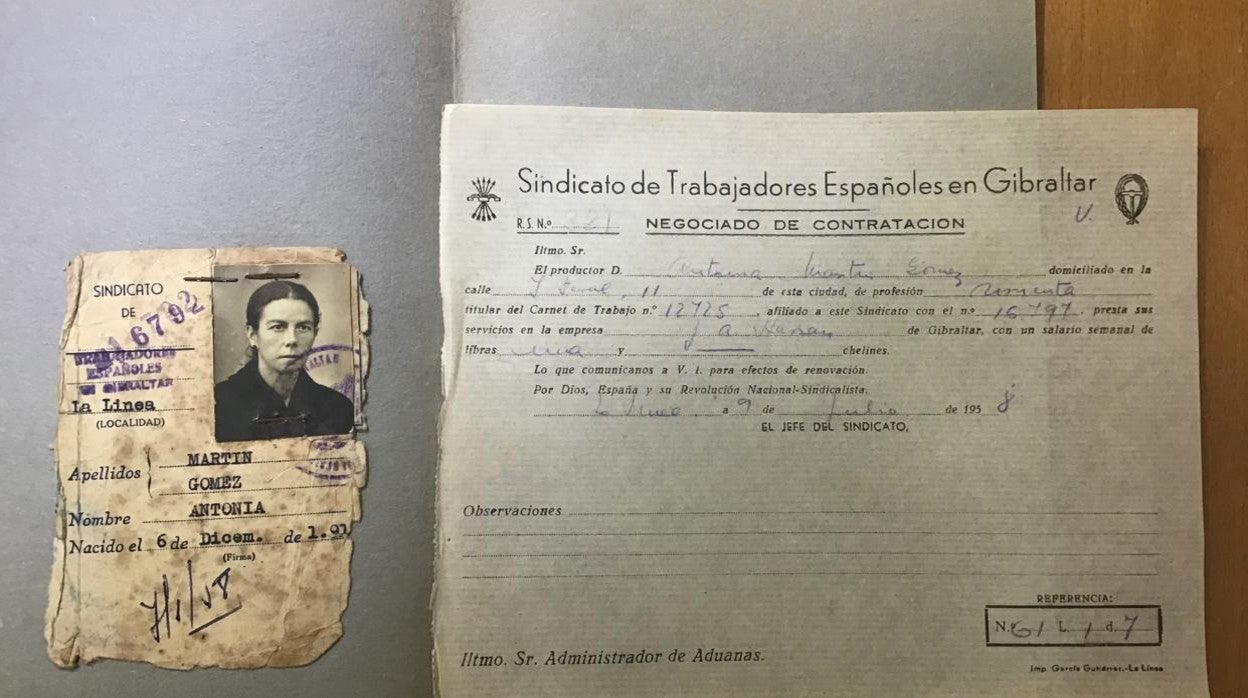 SINDICATO
DE
16792
TRABAJADORES
ESPAÑOLES
EN GIBRALTAR
La Linea
(LOCALIDAD)
Apellidos MARTIN
GOMEZ
Nombre ANTONIA
Nacido el 6 de Dicem. de 1.91
(Firma)
7/1/58
Sindicato de Trabajadores Españoles en Gibraltar
R.S. N.º 221 NEGOCIADO DE CONTRATACION V.
Iltmo. Sr.
El productor D. Antonia Martin Gómez domiciliado en la
calle 11 de esta ciudad, de profesión
titular del Carnet de Trabajo n.º 12725, afiliado a este Sindicato con el n.º 16797, presta sus
servicios en la empresa J. A. de Gibraltar, con un salario semanal de
libras una y chelines.
Lo que comunicamos a V. I. para efectos de renovación.
Por Dios, España y su Revolución Nacional-Sindicalista.
La Linea a 9 de Julio de 1958
EL JEFE DEL SINDICATO,
Observaciones
REFERENCIA:
N.º 61 L 1 d. 7
Iltmo. Sr. Administrador de Aduanas.
Imp. García Gutiérrez.-La Línea